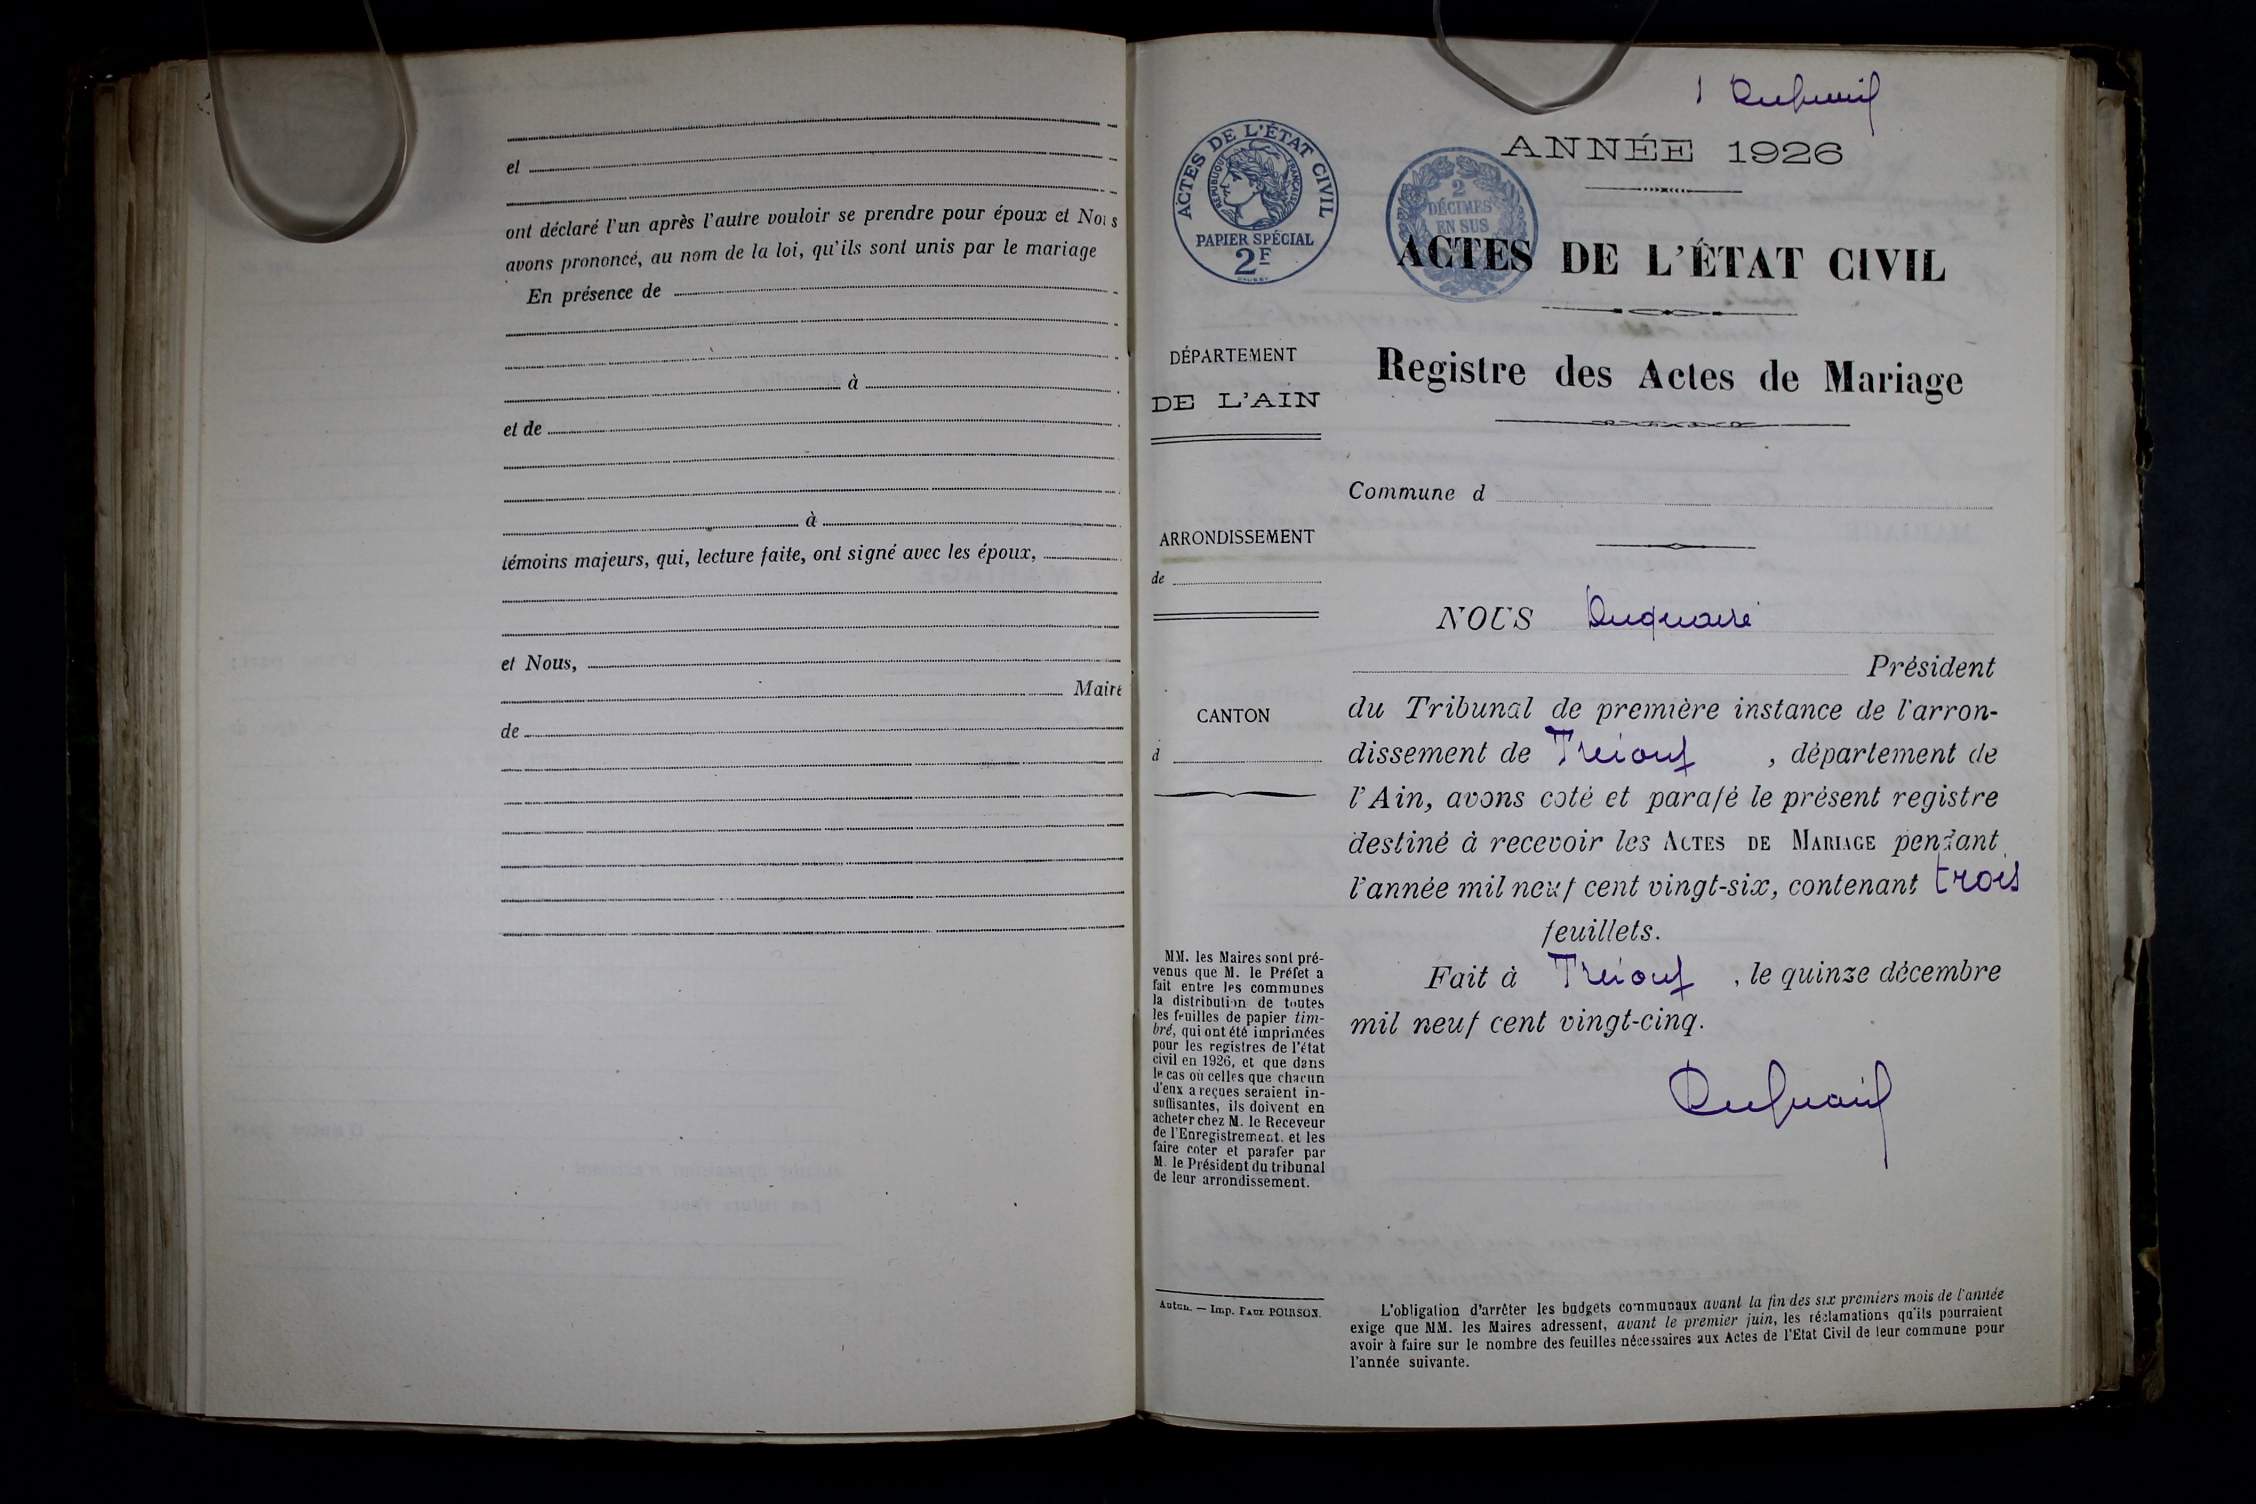 et
ont déclaré l'un après l'autre vouloir se prendre pour époux et Nous
avons prononcé, au nom de la loi, qu'ils sont unis par le mariage
En présence de
à
et de
à
témoins majeurs, qui, lecture faite, ont signé avec les époux,
et Nous,
Maire
de
1
ANNÉE 1926
ACTES DE L'ÉTAT CIVIL
RÉPUBLIQUE FRANÇAISE
PAPIER SPÉCIAL
2F
2
DÉCIMES
EN SUS
ACTES DE L'ÉTAT CIVIL
Registre des Actes de Mariage
DÉPARTEMENT
DE L'AIN
ARRONDISSEMENT
de
CANTON
d
MM. les Maires sont pré-
venus que M. le Préfet a
fait entre les communes
la distribution de toutes
les feuilles de papier tim-
bré, qui ont été imprimées
pour les registres de l'état
civil en 1926, et que dans
le cas où celles que chacun
d'eux a reçues seraient in-
suffisantes, ils doivent en
acheter chez M. le Receveur
de l'Enregistrement, et les
faire coter et parafer par
M. le Président du tribunal
de leur arrondissement.
Autun. — Imp. PAUL POIRSON.
Commune d
NOUS Duquaire
Président
du Tribunal de première instance de l'arron-
dissement de , département de
l'Ain, avons coté et parafé le présent registre
destiné à recevoir les ACTES DE MARIAGE pendant
l'année mil neuf cent vingt-six, contenant trois
feuillets.
Fait à , le quinze décembre
mil neuf cent vingt-cinq.
L'obligation d'arrêter les budgets communaux avant la fin des six premiers mois de l'année
exige que MM. les Maires adressent, avant le premier juin, les réclamations qu'ils pourraient
avoir à faire sur le nombre des feuilles nécessaires aux Actes de l'Etat Civil de leur commune pour
l'année suivante.